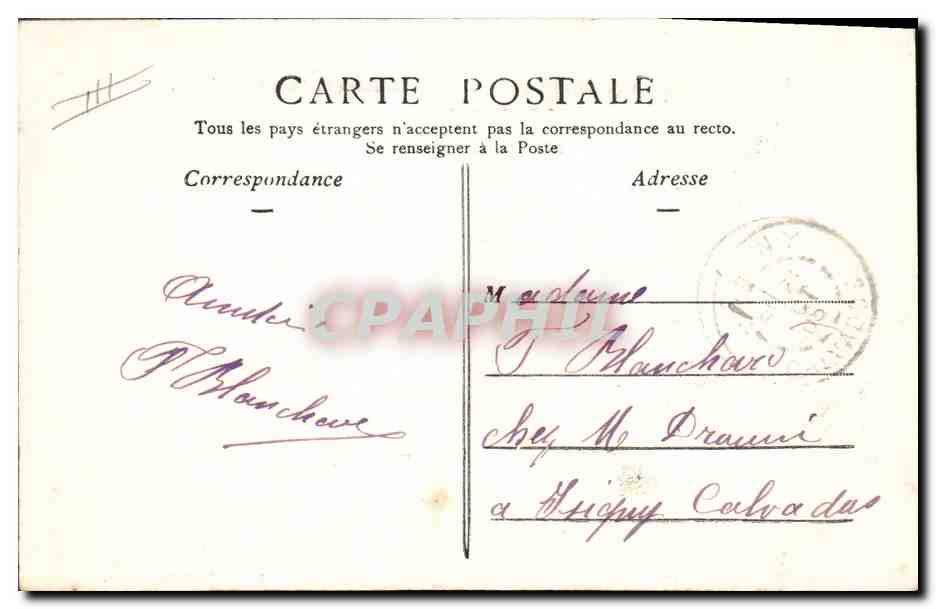 CARTE POSTALE
Tous les pays étrangers n'acceptent pas la correspondance au recto.
Se renseigner à la Poste
Correspondance
Adresse
Blanchard
Madame
Blanchard
chez M
a Isigny Calvados
CPAPHIL